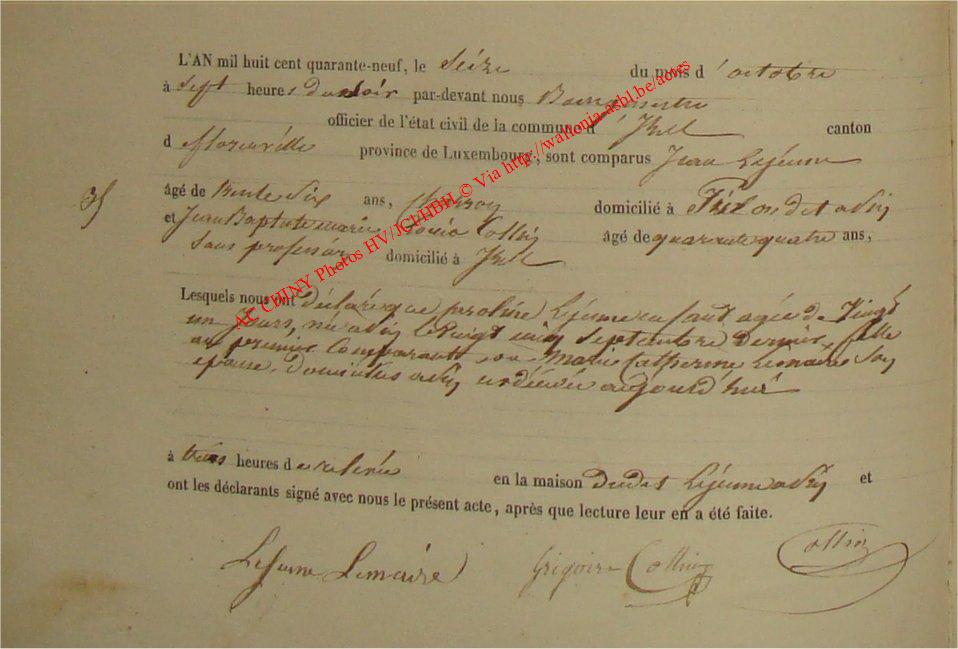 L'AN mil huit cent quarante-neuf, le Seize du mois d'octobre
à Sept heures du soir par-devant nous Bourgmestre
officier de l'état civil de la commune d'Izel canton
d florenville province de Luxembourg, sont comparus Jean Lejeune
35 âgé de trente six ans, domicilié à
et Jean Baptiste marie Collin âgé de quarente quatre ans,
Sans profession domicilié à Izel
Lesquels nous ont déclaré que Lejeune enfant agée de Vingt
un Jours, née le Vingt cinq Septembre dernier, fille
au premier Comparant ou Marie Catherine Lemaire Son
épouse, Domiciliés est décédée aujourd'hui
à trois heures de relevée en la maison dudit Lejeune et
ont les déclarants signé avec nous le présent acte, après que lecture leur en a été faite.
Lejeune Lemaire Grégoire Collin Collin
AC CHINY Photos HV/JCI/HBH © Via http://wallonia-asbl.be/actes